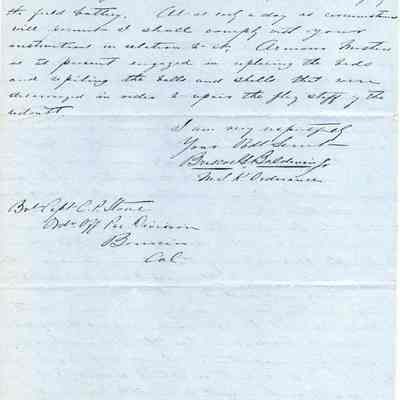 the field battery. At as early a day as circumstances
will permit I shall comply with your
instructions in relation to it. Armorer
is at present engaged in replacing the beds
and repiling the balls and shells that were
deranged in order to repair the flag staff of the
redoubt.
I am very respectfully
Your Obdt Servt
Briscoe G. Baldwin Jr
Mil. K. Ordnance
Bvt Capt C. P. Stone
Ord. Off Pac Division
Benicia
Cal